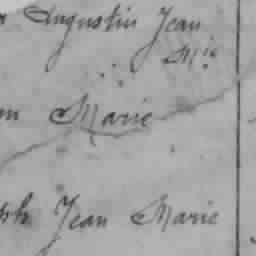 Augustin Jean
Mie
Marie
ph Jean Marie